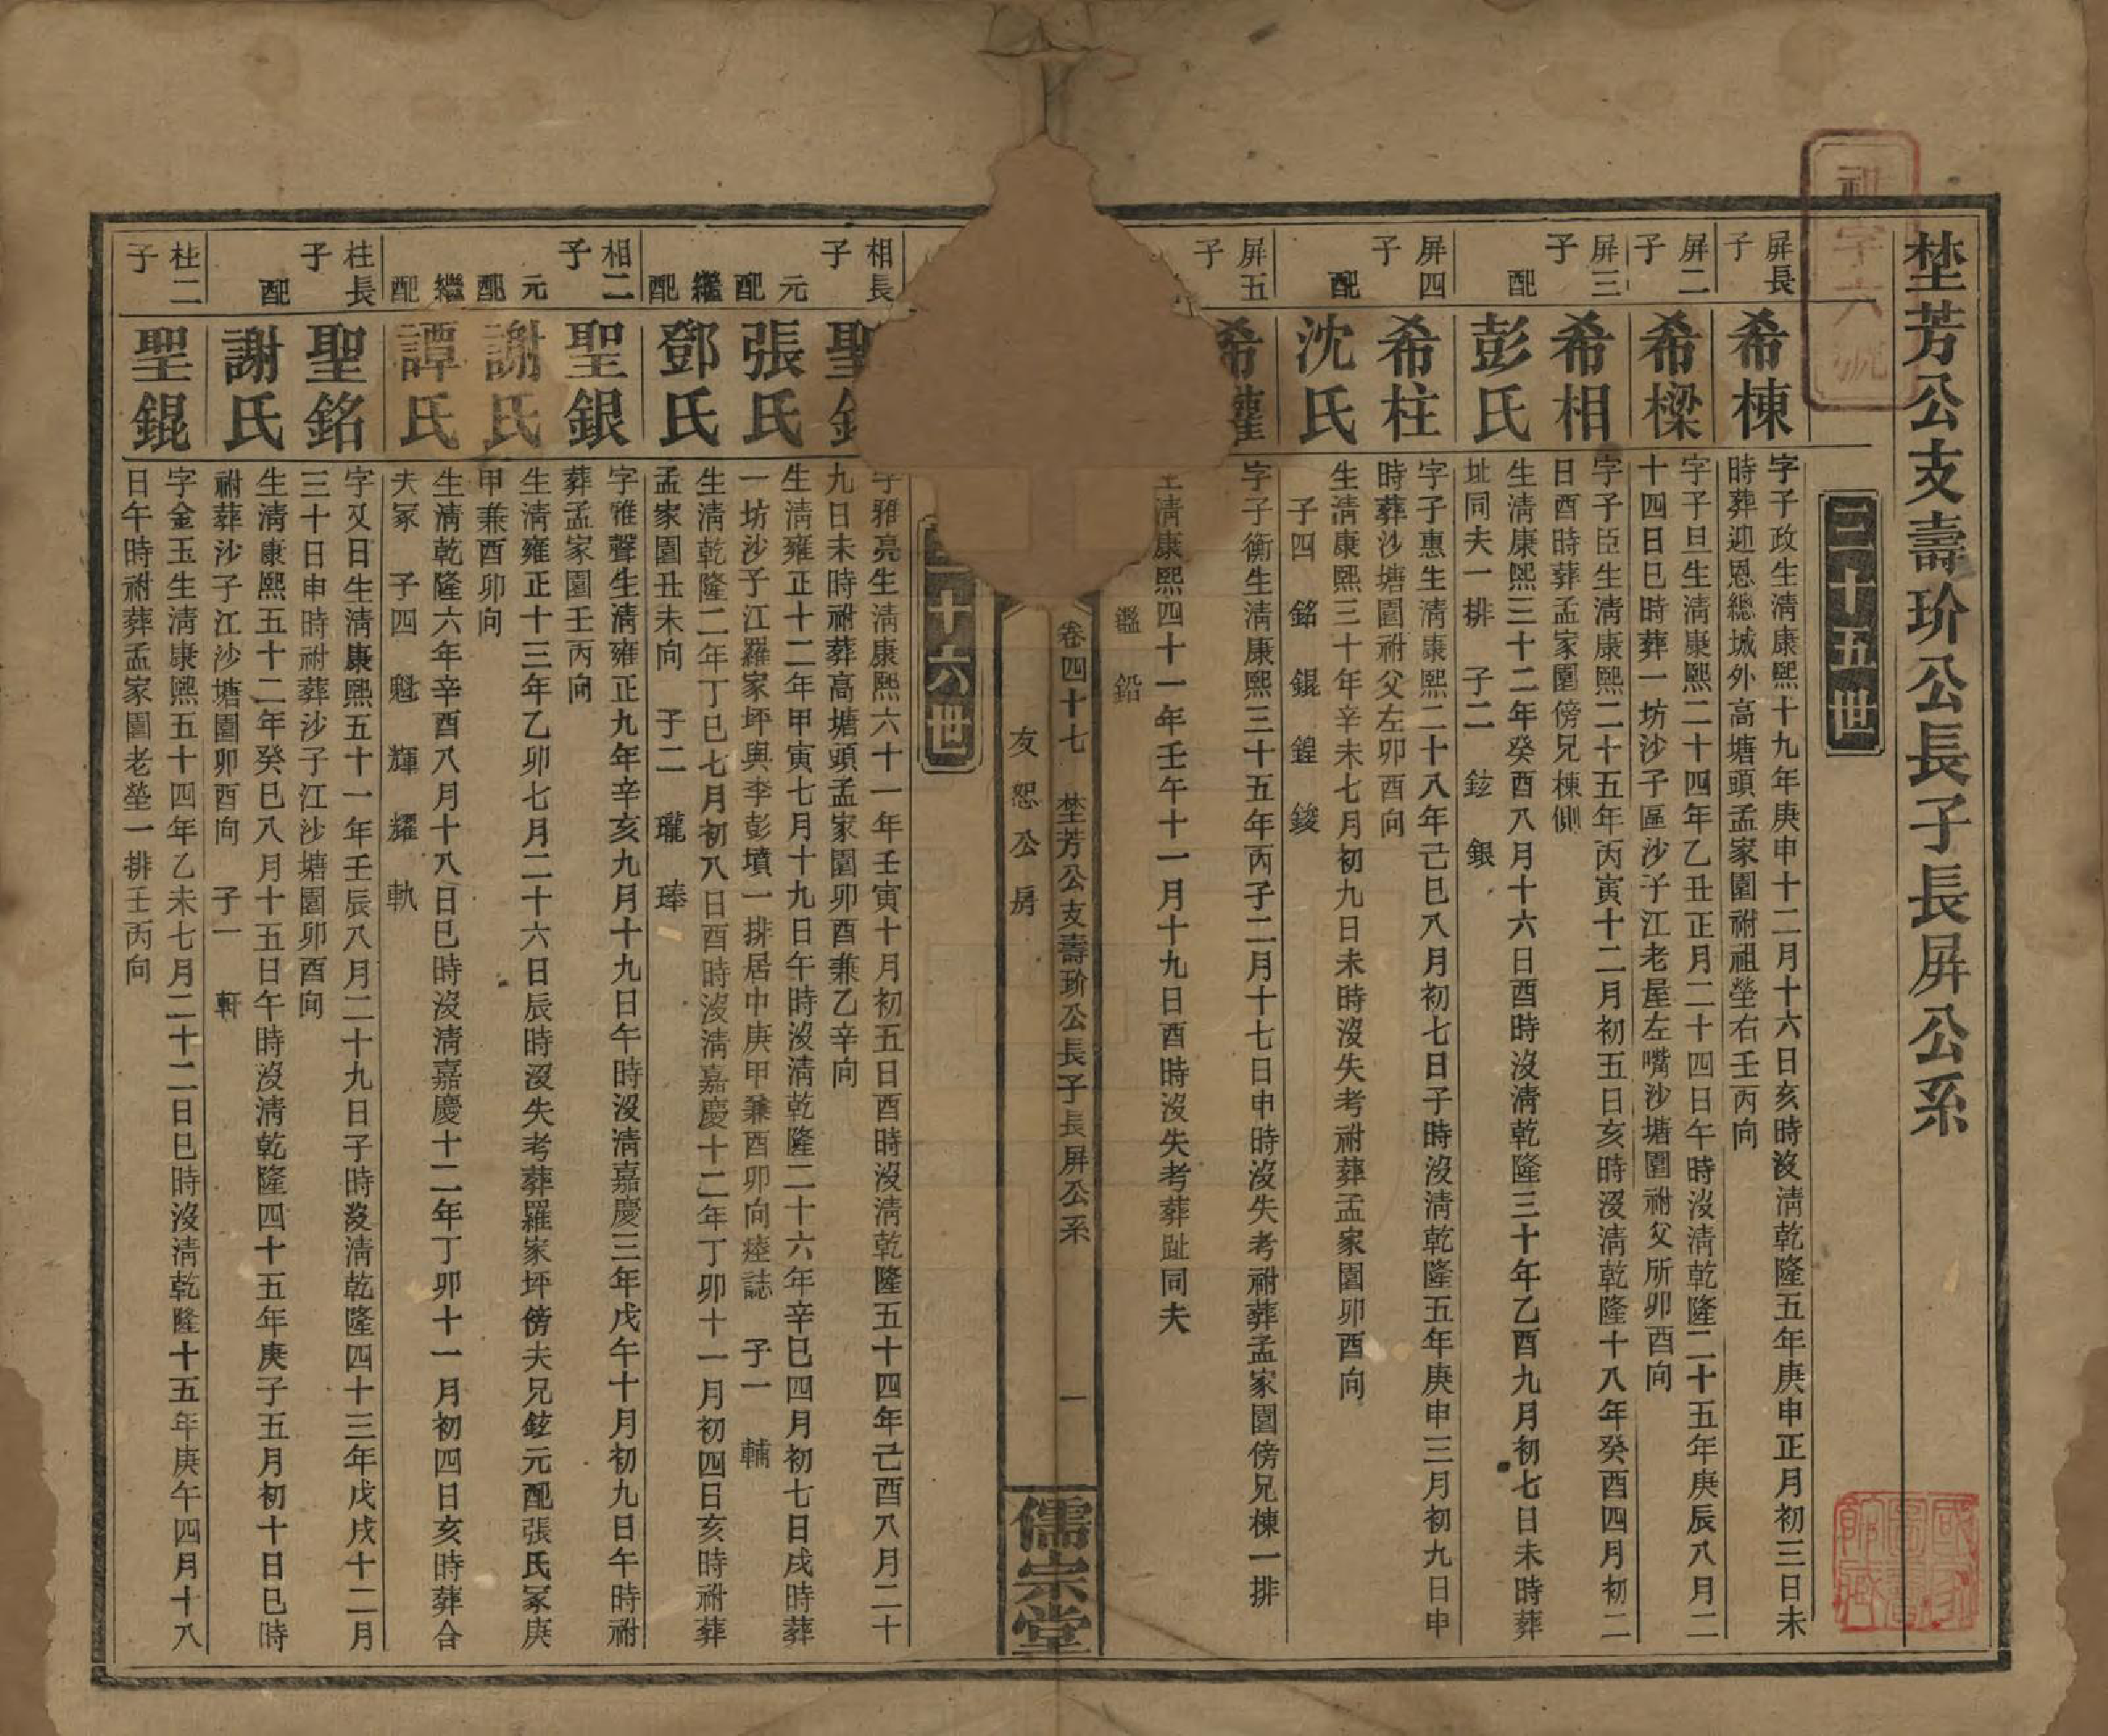 埜芳公支壽玠公長子長屏公系
三十五世
屏長子
希棟
字子政生清康熙十九年庚申十二月十六日亥時沒清乾隆五年庚申正月初三日未
時葬迎恩總城外高塘頭孟家園祔祖塋右壬丙向
屏二子
希樑
字子旦生清康熙二十四年乙丑正月二十四日午時沒清乾隆二十五年庚辰八月二
十四日巳時葬一坊沙子區沙子江老屋左嘴沙塘園祔父所卯酉向
屏三子
希相
字子臣生清康熙二十五年丙寅十二月初五日亥時沒清乾隆十八年癸酉四月初二
日酉時葬孟家園傍兄棟側
配
彭氏
生清康熙三十二年癸酉八月十六日酉時沒清乾隆三十年乙酉九月初七日未時葬
址同夫一排 子二 鉉 銀
屏四子
希柱
字子惠生清康熙二十八年己巳八月初七日子時沒清乾隆五年庚申三月初九日申
時葬沙塘園祔父左卯酉向
配
沈氏
生清康熙三十年辛未七月初九日未時沒失考祔葬孟家園卯酉向
子四 銘 錕 鍠 錂
屏五子
希權
字子衡生清康熙三十五年丙子二月十七日申時沒失考祔葬孟家園傍兄棟一排
生清康熙四十一年壬午十一月十九日酉時沒失考葬趾同夫
鑑 鉛
卷四十七 埜芳公支壽玠公長子長屏公系 一
友恕公房
儒宗堂
十六世
相長子
聖
字雅亮生清康熙六十一年壬寅十月初五日酉時沒清乾隆五十四年己酉八月二十
九日未時祔葬高塘頭孟家園卯酉兼乙辛向
元配
張氏
生清雍正十二年甲寅七月十九日午時沒清乾隆二十六年辛巳四月初七日戌時葬
一坊沙子江羅家坪與李彭墳一排居中庚甲兼酉卯向瘞誌 子一 輔
繼配
鄧氏
生清乾隆二年丁巳七月初八日酉時沒清嘉慶十二年丁卯十一月初四日亥時祔葬
孟家園丑未向 子二 瓏 琫
相二子
聖銀
字雅聲生清雍正九年辛亥九月十九日午時沒清嘉慶三年戊午十月初九日午時祔
葬孟家園壬丙向
元配
謝氏
生清雍正十三年乙卯七月二十六日辰時沒失考葬羅家坪傍夫兄鉉元配張氏冢庚
甲兼酉卯向
繼配
譚氏
生清乾隆六年辛酉八月十八日巳時沒清嘉慶十二年丁卯十一月初四日亥時葬合
夫冢 子四 魁 輝 耀 軌
柱長子
聖銘
字又日生清康熙五十一年壬辰八月二十九日子時沒清乾隆四十三年戊戌十二月
三十日申時祔葬沙子江沙塘園卯酉向
配
謝氏
生清康熙五十二年癸巳八月十五日午時沒清乾隆四十五年庚子五月初十日巳時
祔葬沙子江沙塘園卯酉向 子一 軒
柱二子
聖錕
字金玉生清康熙五十四年乙未七月二十二日巳時沒清乾隆十五年庚午四月十八
日午時祔葬孟家園老塋一排壬丙向